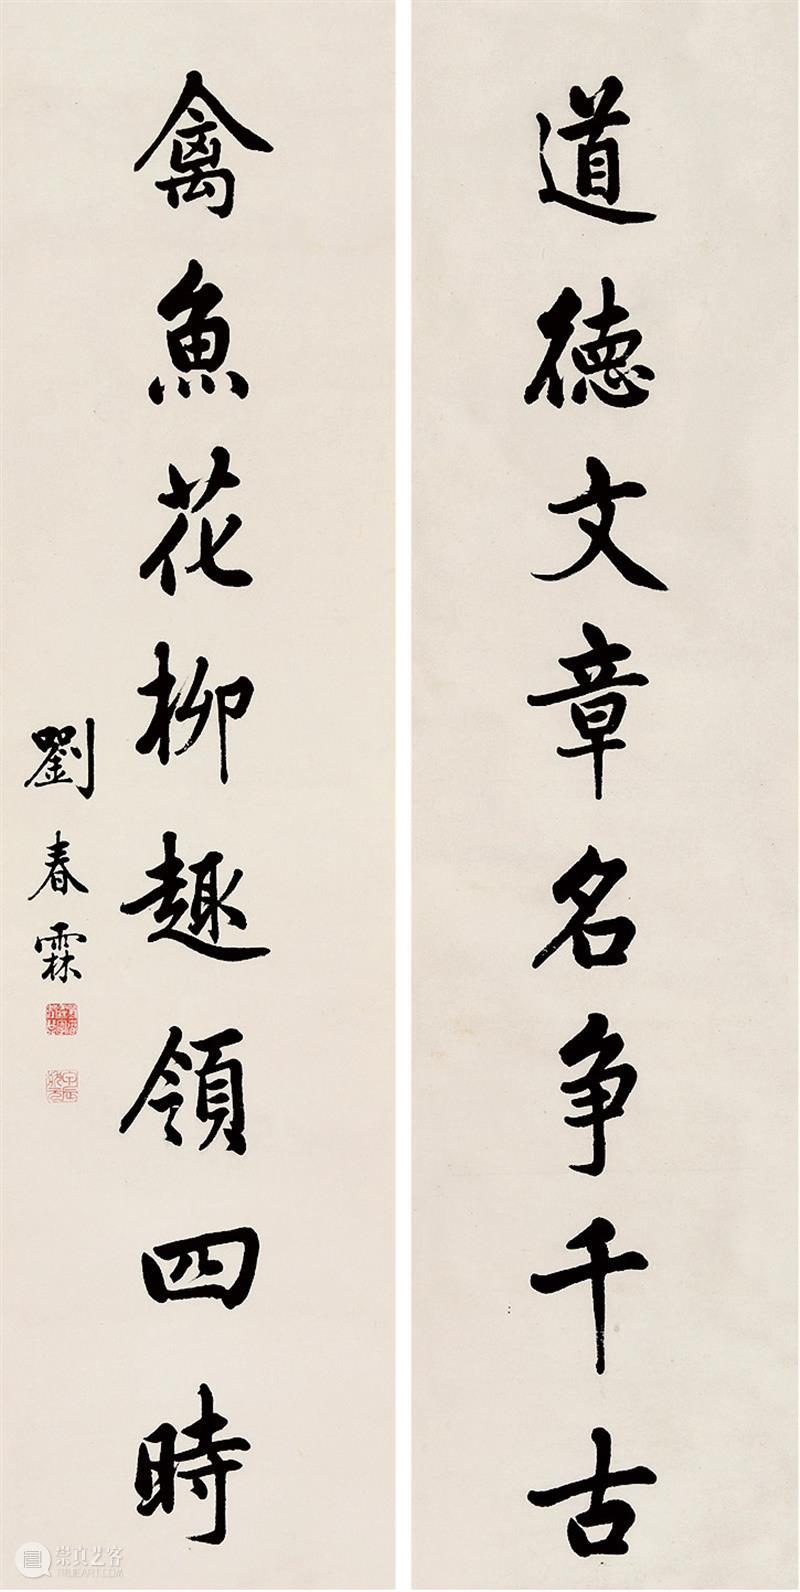 道德文章名争千古
禽魚花柳趣領四時
劉春霖
崇真艺客